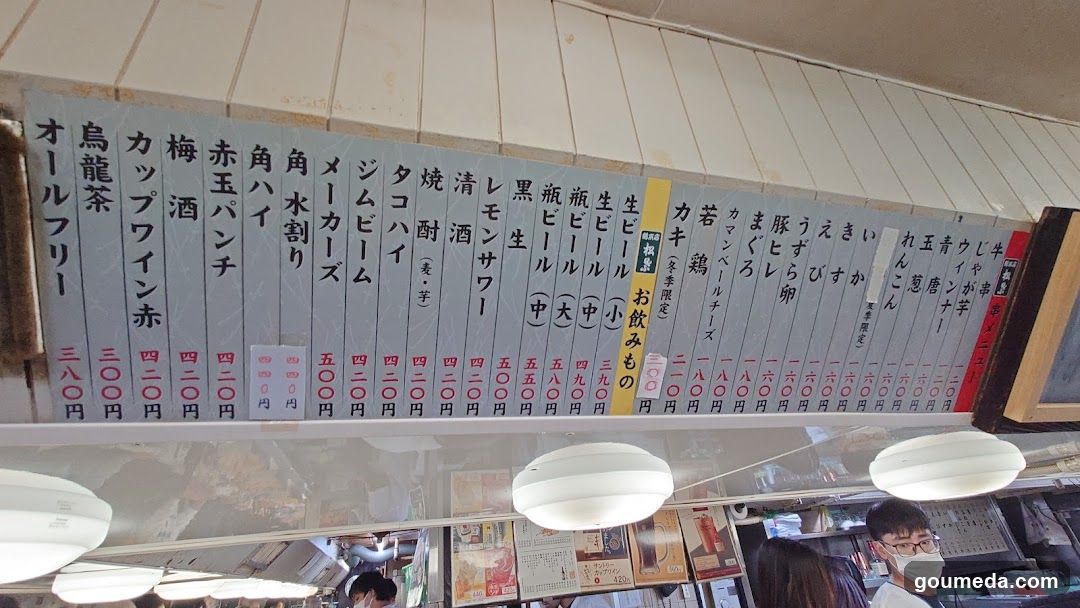 松葉 串メニュー
牛串 一二〇円
じゃが芋 一二〇円
ウィンナー 一二〇円
青唐 一二〇円
玉葱 一六〇円
れんこん 一六〇円
季限定)
いか 一六〇円
きす 一六〇円
えび 一六〇円
うずら卵 一六〇円
豚ヒレ 一六〇円
まぐろ 一八〇円
カマンベールチーズ 一八〇円
若鶏 一八〇円
カキ(冬季限定) 二一〇円
円
松葉 お飲みもの
生ビール(小) 三九〇円
生ビール(中) 四九〇円
瓶ビール(大) 五八〇円
瓶ビール(中) 五五〇円
黒生 五〇〇円
レモンサワー 四二〇円
清酒 四二〇円
焼酎(麦・芋) 四二〇円
タコハイ 四二〇円
ジムビーム 四二〇円
メーカーズ 五〇〇円
角 水割り 四四〇円
角ハイ 四四〇円
赤玉パンチ 四二〇円
梅酒 四二〇円
カップワイン赤 四二〇円
烏龍茶 三〇〇円
オールフリー 三八〇円
サントリー
カップワイン
420円
goumeda.com